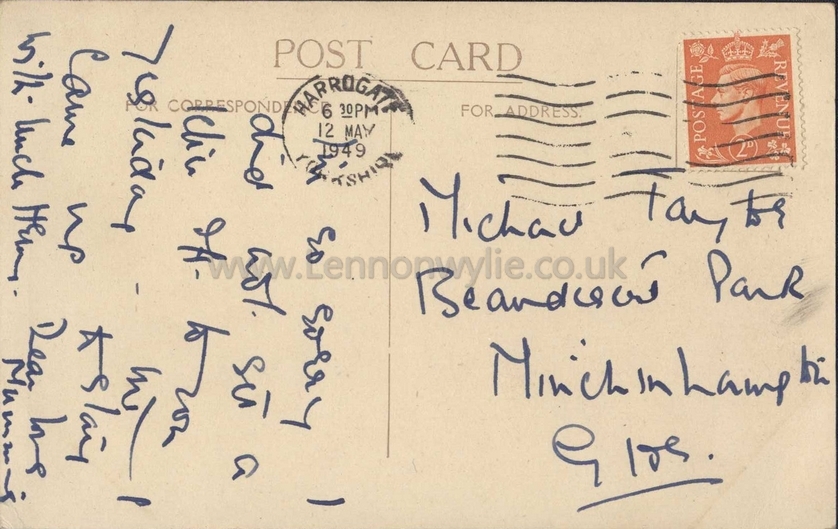 POST CARD
FOR CORRESPONDENCE
FOR ADDRESS.
HARROGATE
6 30PM
12 MAY
1949
YORKSHIRE
POSTAGE
REVENUE
2D
so sorry I
did not get a
off to you
Yesterday -
Came up to stay
with Uncle Henry. Dear love
Mummie
Michael Taylor
Beaudesert Park
Minchinhampton
Glos.
www.Lennonwylie.co.uk